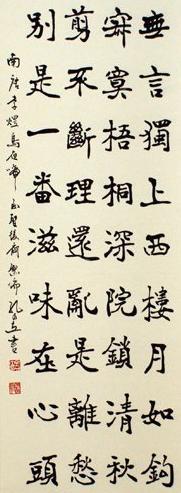 無言獨上西樓月如鉤
寂寞梧桐深院鎖清秋
剪不斷理還亂是離愁
別是一番滋味在心頭
南唐李煜烏夜啼 書